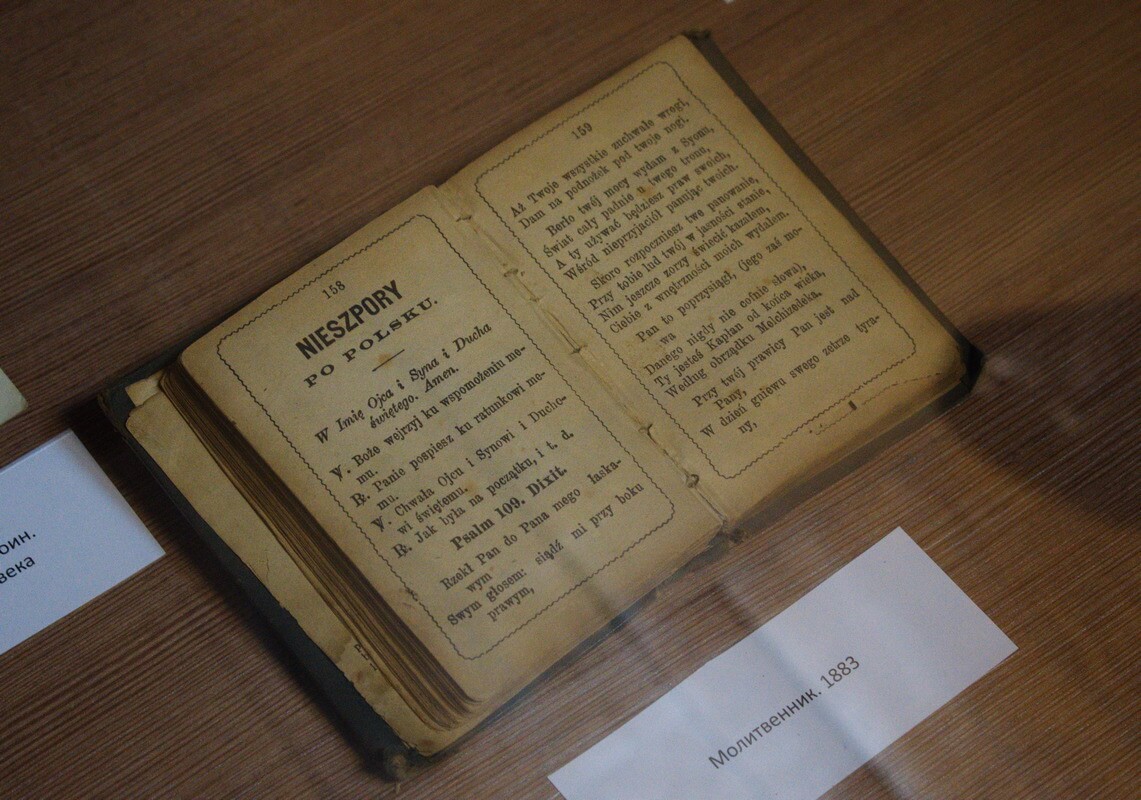 158
NIESZPORY
PO POLSKU.
W Imię Ojca i Syna i Ducha
świętego. Amen.
℣. Boże wejrzyj ku wspomożeniu me-
mu.
℟. Panie pospiesz ku ratunkowi me-
mu.
℣. Chwała Ojcu i Synowi i Ducho-
wi świętemu.
℟. Jak była na początku, i t. d.
Psalm 109. Dixit.
Rzekł Pan do Pana mego łaska-
wym
Swym głosem: siądź mi przy boku
prawym,
159
Aż Twoje wszystkie zuchwałe wrogi,
Dam na podnożek pod twoje nogi.
Berło twój mocy wydam z Syonu,
Świat cały padnie u twego tronu,
A ty używać będziesz praw swoich,
Wśród nieprzyjaciół panując twoich.
Skoro rozpoczniesz twe panowanie,
Przy tobie lud twój w jasności stanie,
Nim jeszcze zorzy świecić kazałem,
Ciebie z wnętrzności moich wydałem.
Pan to poprzysiągł, (jego zaś mo-
wa
Danego nigdy nie cofnie słowa),
Ty jesteś Kapłan od końca wieka,
Według obrządku Melchizedeka.
Przy twój prawicy Pan jest nad
Pany,
W dzień gniewu swego zetrze tyra-
ny,
Молитвенник. 1883
века